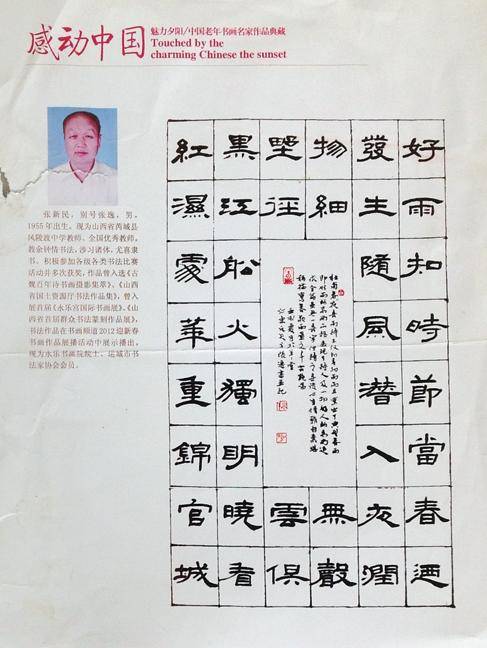 感动中国
魅力夕阳/中国老年书画名家作品典藏
Touched by the
charming Chinese the sunset
张新民，别号张逸，男，
1955年出生。现为山西省芮城县
风陵渡中学教师。全国优秀教师。
教余钟情书法，涉习诸体，尤喜隶
书。积极参加各级各类书法比赛
活动并多次获奖，作品曾入选《古
魏百年诗书画摄影集萃》、《山西
省国土资源厅书法作品集》，曾入
展首届《永乐宫国际书画展》、《山
西省首届群众书法篆刻作品展》，
书法作品在书画频道2012迎新春
书画作品展播活动中展示播出。
现为水乐书画院院士、运城市书
法家协会会员。
好雨知時節當春迺
發生隨風潛入夜潤
物細無聲
野徑雲俱
黑江船火獨明曉看
紅濕處華重錦官城